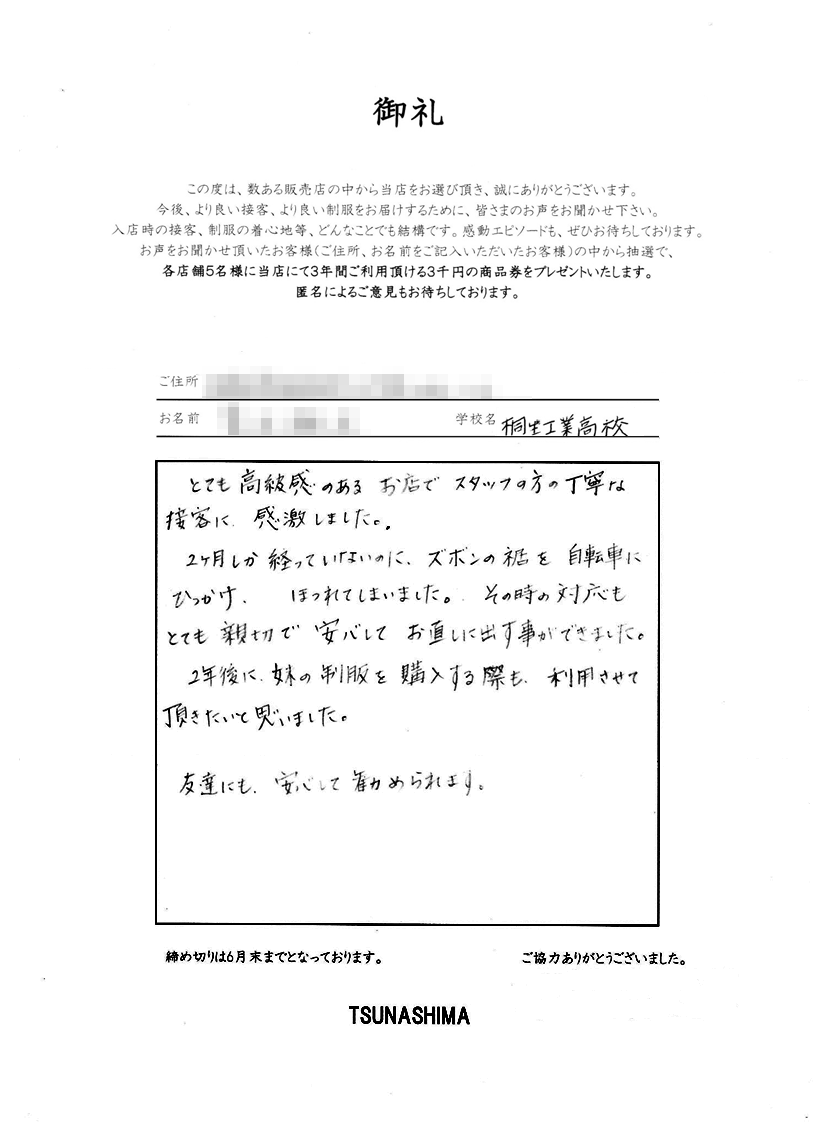 御礼
この度は、数ある販売店の中から当店をお選び頂き、誠にありがとうございます。
今後、より良い接客、より良い制服をお届けするために、皆さまのお声をお聞かせ下さい。
入店時の接客、制服の着心地等、どんなことでも結構です。感動エピソードも、ぜひお待ちしております。
お声をお聞かせ頂いたお客様(ご住所、お名前をご記入いただいたお客様)の中から抽選で、
各店舗5名様に当店にて3年間ご利用頂ける3千円の商品券をプレゼントいたします。
匿名によるご意見もお待ちしております。
ご住所
お名前 学校名 桐生工業高校
とても高級感のある お店で スタッフの方の丁寧な
接客に、感激しました。
2ヶ月しか経っていないのに、ズボンの裾を自転車に
ひっかけ、 ほつれてしまいました。その時の対応も
とても親切で 安心して お直しに出す事ができました。
2年後に、妹の制服を購入する際も、利用させて
頂きたいと思いました。
友達にも、安心して勧められます。
締め切りは6月末までとなっております。 ご協力ありがとうございました。
TSUNASHIMA